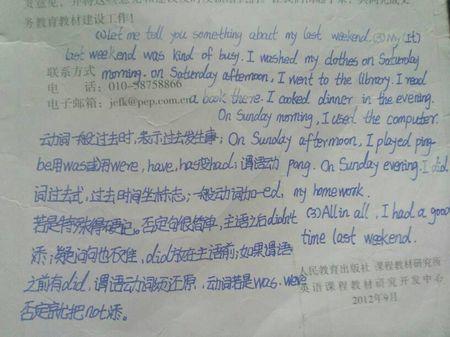 务教育教材建设工作!
(1)Let me tell you something about my last weekend. (2)My (It)
last weekend was kind of busy. I washed my clothes on Saturday
morning. on Saturday afternoon, I went to the library. I read
a book there. I cooked dinner in the evening.
On Sunday morning, I used the computer.
On Sunday afternoon, I played ping
pong. On Sunday evening. I did
my homework.
(3)All in all, I had a good
time last weekend.
联系方式
电 话:010-58758866
电子邮箱:jefk@pep.com.cn
动词一般过去时,表示过去发生事;
be用was或用were, have, has变had;谓语动
词过去式,过去时间坐标志;一般动词加-ed,
若是特殊得硬记。否定句很简单,主语之后didn't
添;疑问句也不难,did放在主语前;如果谓语
之前有did,谓语动词须还原,动词若是was, were
否定就把not添。
人民教育出版社 课程教材研究所
英语课程教材研究开发中心
2012年9月